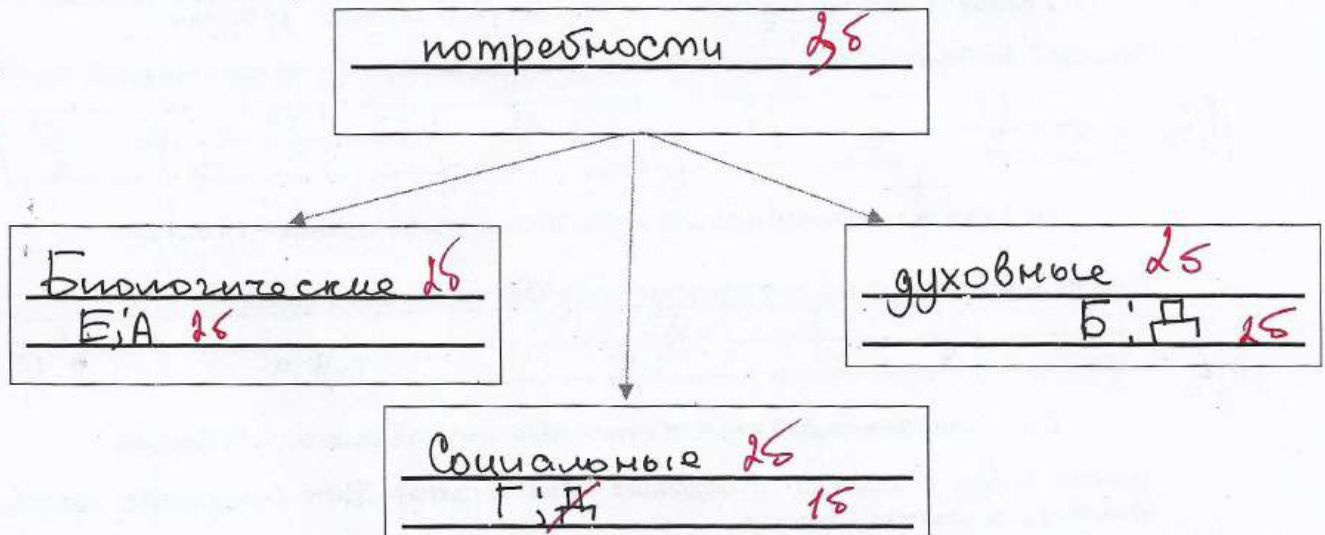 потребности 2б
Биологические 2б
Е; А 2б
духовные 2б
Б; Д 2б
Социальные 2б
Г; Д 1б